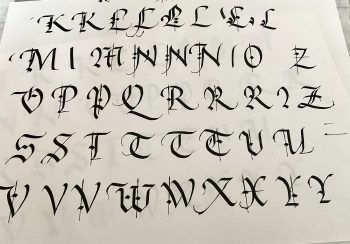 K K L L L L L L
M I M N N N I O Z
O P P Q R R R 2 Z
S S T T T T U U
V V V W W X X Y Y